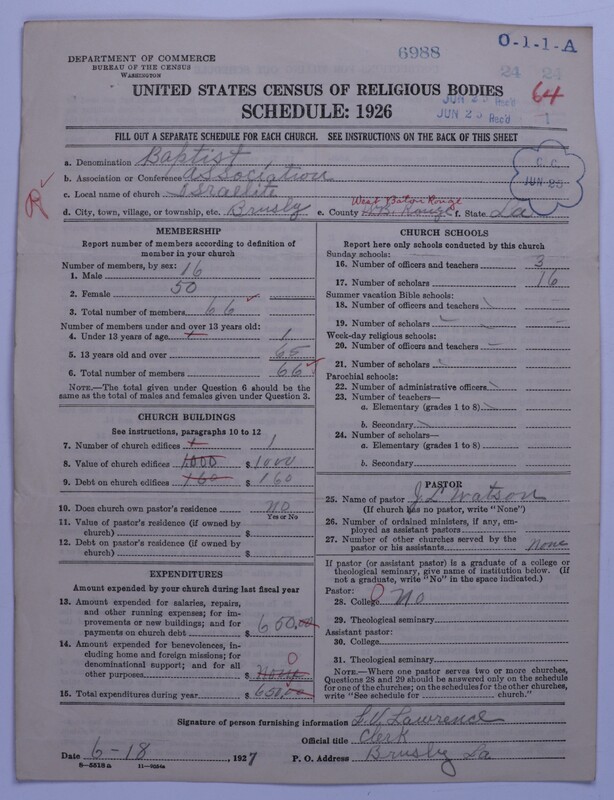 6988
O-1-1-A
DEPARTMENT OF COMMERCE
BUREAU OF THE CENSUS
WASHINGTON
24 24
UNITED STATES CENSUS OF RELIGIOUS BODIES
64
SCHEDULE: 1926
JUN 25 Rec'd
JUN 25 Rec'd 1
FILL OUT A SEPARATE SCHEDULE FOR EACH CHURCH. SEE INSTRUCTIONS ON THE BACK OF THIS SHEET
a. Denomination Baptist
C. C.
JUN 25
b. Association or Conference association
c. Local name of church Israelite
West Baton Rouge
d. City, town, village, or township, etc. Brusly e. County W.B. Rouge f. State La
MEMBERSHIP
Report number of members according to definition of
member in your church
Number of members, by sex:
1. Male 16
2. Female 50
3. Total number of members 66
Number of members under and over 13 years old:
4. Under 13 years of age 1
5. 13 years old and over 65
6. Total number of members 66
NOTE.—The total given under Question 6 should be the
same as the total of males and females given under Question 3.
CHURCH BUILDINGS
See instructions, paragraphs 10 to 12
7. Number of church edifices 1 1
8. Value of church edifices 1,000 $ 1000
9. Debt on church edifices 160 $ 160
10. Does church own pastor's residence NO
Yes or No
11. Value of pastor's residence (if owned by
church) $
12. Debt on pastor's residence (if owned by
church) $
EXPENDITURES
Amount expended by your church during last fiscal year
13. Amount expended for salaries, repairs,
and other running expenses; for im-
provements or new buildings; and for
payments on church debt $ 650.00
14. Amount expended for benevolences, in-
cluding home and foreign missions; for
denominational support; and for all
0
other purposes $ None
15. Total expenditures during year $ 650.00
CHURCH SCHOOLS
Report here only schools conducted by this church
Sunday schools:
16. Number of officers and teachers 3
17. Number of scholars 16
Summer vacation Bible schools:
18. Number of officers and teachers
19. Number of scholars
Week-day religious schools:
20. Number of officers and teachers
21. Number of scholars
Parochial schools:
22. Number of administrative officers
23. Number of teachers—
a. Elementary (grades 1 to 8)
b. Secondary
24. Number of scholars—
a. Elementary (grades 1 to 8)
b. Secondary
PASTOR
25. Name of pastor J. L. Watson
(If church has no pastor, write "None")
26. Number of ordained ministers, if any, em-
ployed as assistant pastors
27. Number of other churches served by the
pastor or his assistants None
If pastor (or assistant pastor) is a graduate of a college or
theological seminary, give name of institution below. (If
not a graduate, write "No" in the space indicated.)
Pastor:
28. College 0 No
29. Theological seminary
Assistant pastor:
30. College
31. Theological seminary
NOTE.—Where one pastor serves two or more churches,
Questions 28 and 29 should be answered only on the schedule
for one of the churches; on the schedules for the other churches,
write "See schedule for church."
Signature of person furnishing information Lawrence
Official title Clerk
Date 6-18, 1927
P. O. Address Brusly La
8-5518a 11-9024a